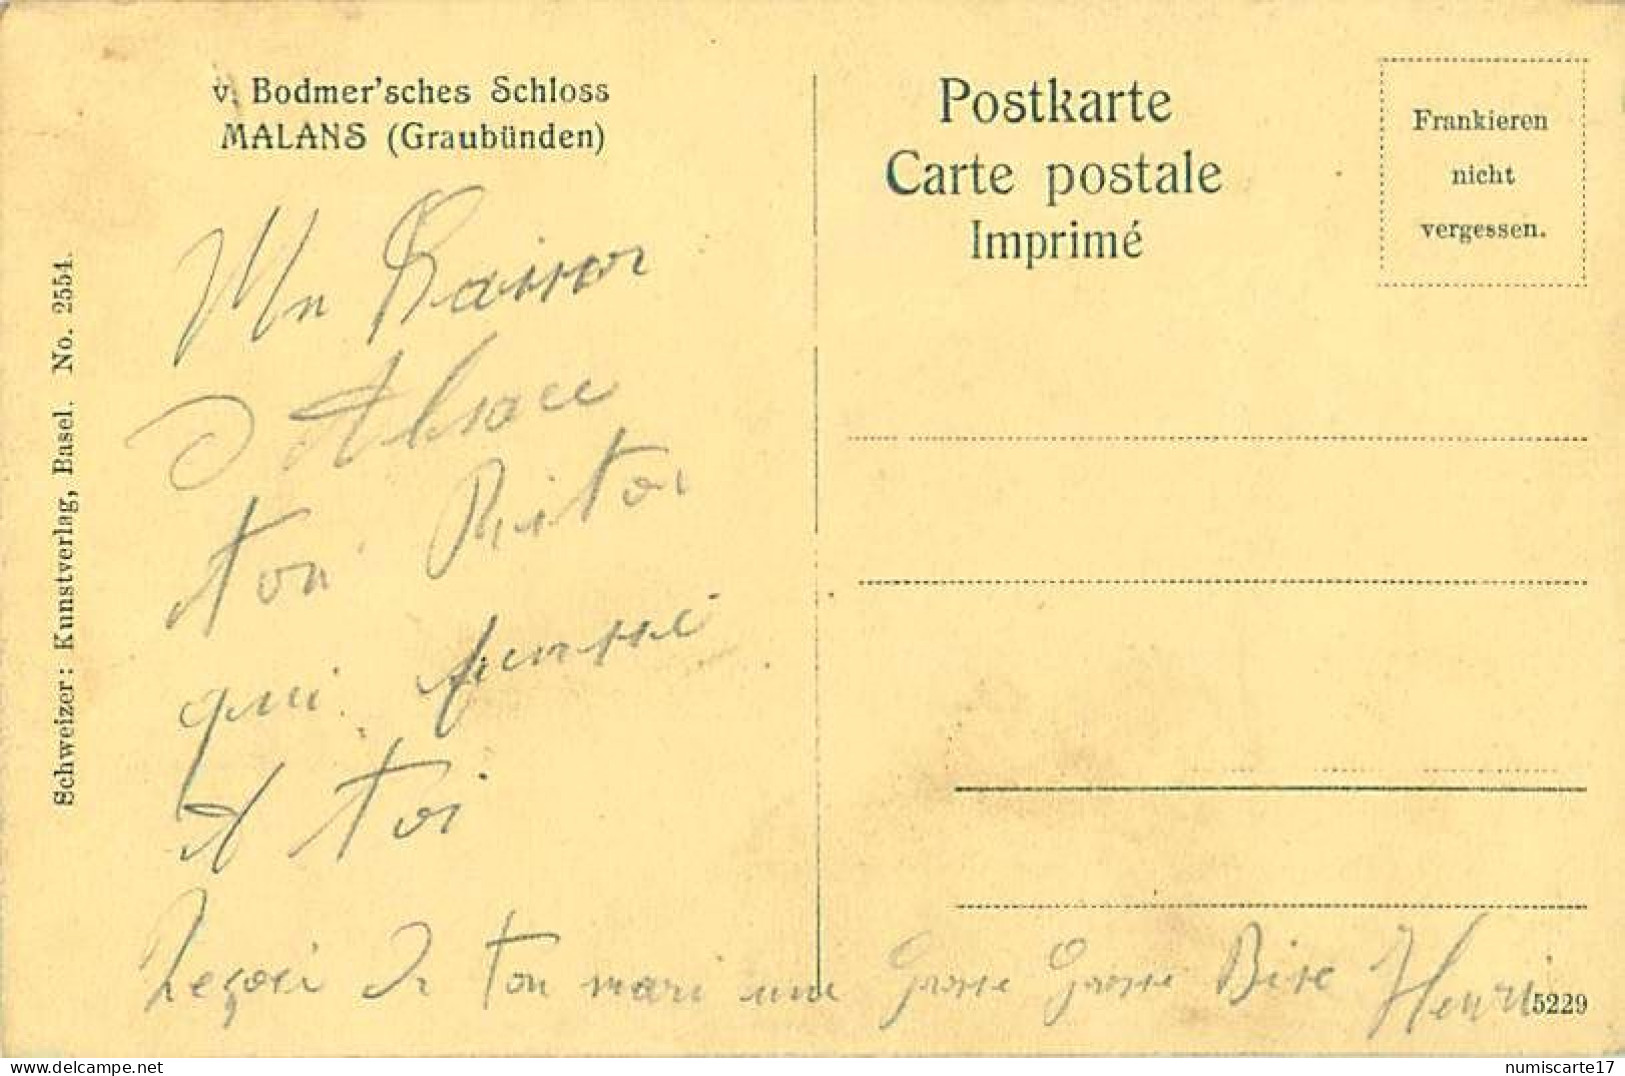 v. Bodmer'sches Schloss
MALANS (Graubünden)
Postkarte
Carte postale
Imprimé
Frankieren
nicht
vergessen.
Schweizer: Kunstverlag, Basel. No. 2554.
Un
d Alsace
ton
qui pensse
A toi
Reçoi de ton mari une Grosse Grosse Bise Henri
5229
www.delcampe.net
numiscarte17